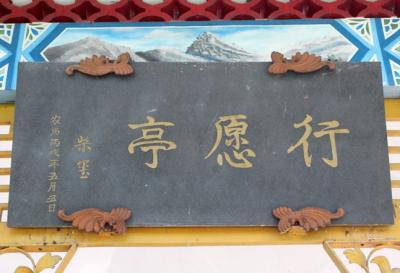 行愿亭
柴玺
农历丙戌年五月五日